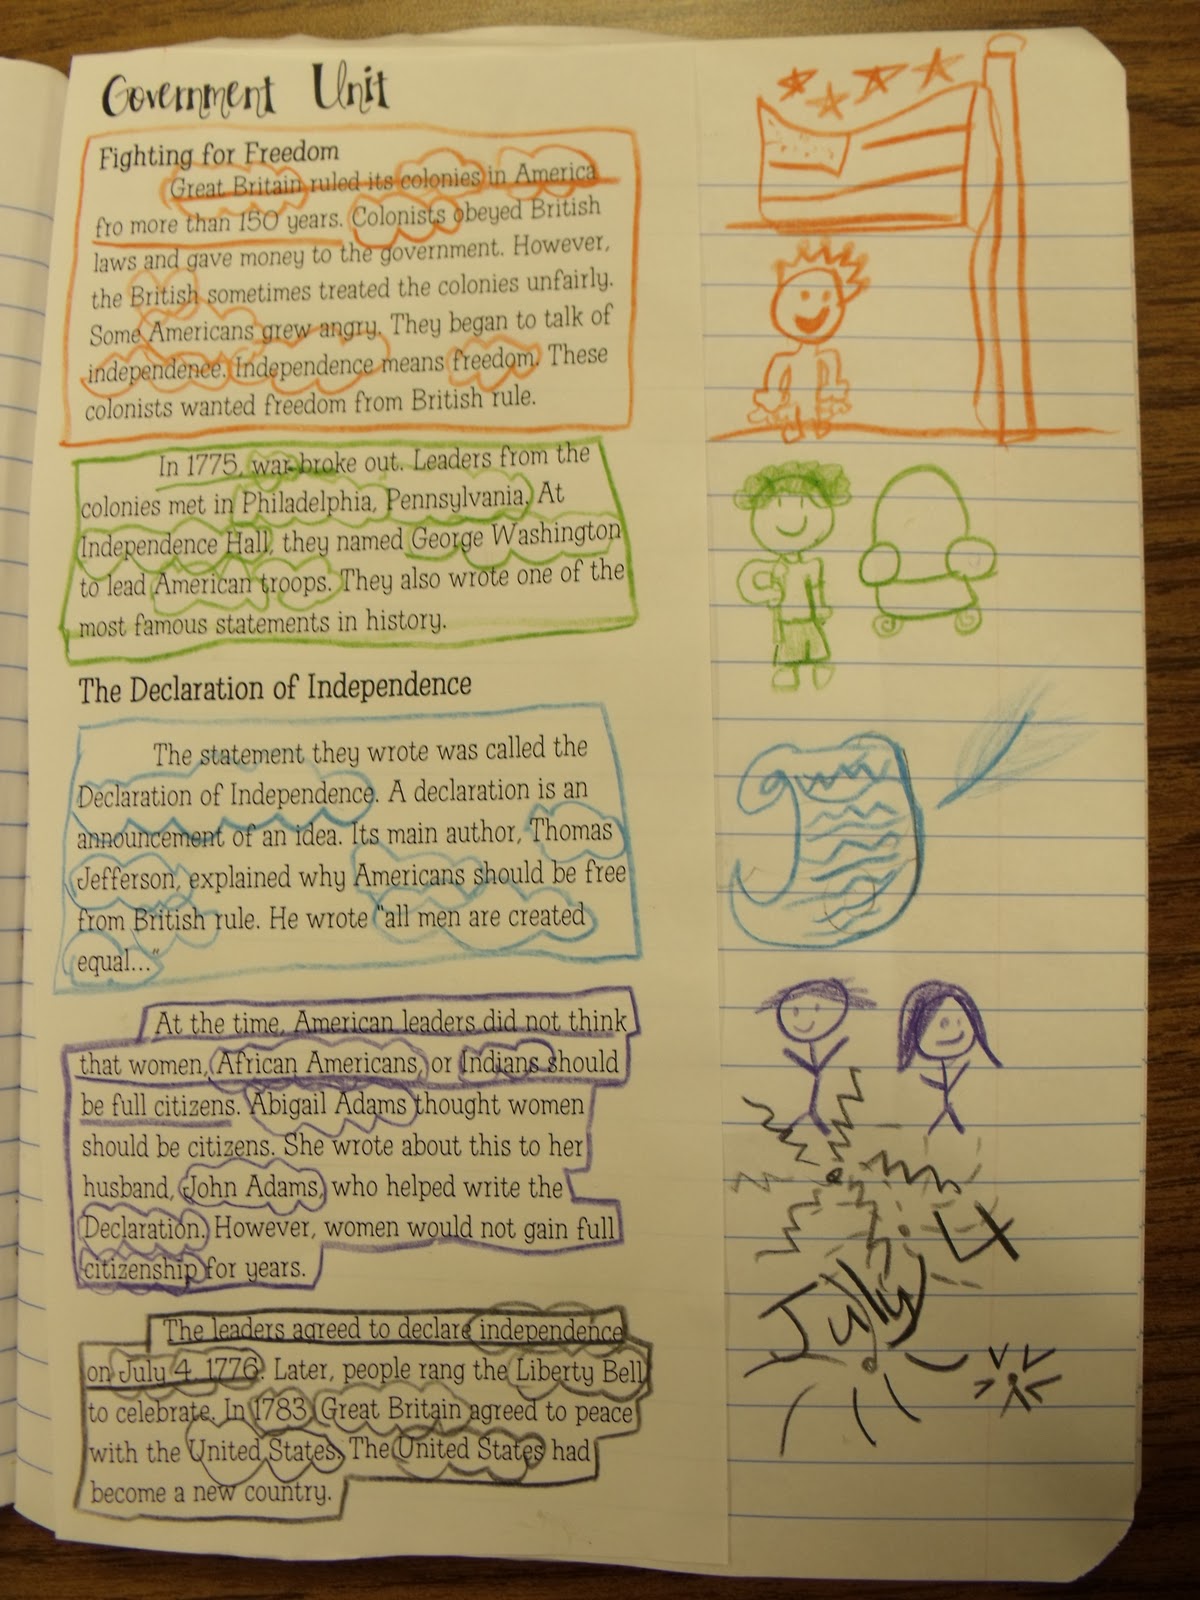 Government Unit
Fighting for Freedom
Great Britain ruled its colonies in America
fro more than 150 years. Colonists obeyed British
laws and gave money to the government. However,
the British sometimes treated the colonies unfairly.
Some Americans grew angry. They began to talk of
independence. Independence means freedom. These
colonists wanted freedom from British rule.
In 1775, war broke out. Leaders from the
colonies met in Philadelphia, Pennsylvania. At
Independence Hall, they named George Washington
to lead American troops. They also wrote one of the
most famous statements in history.
The Declaration of Independence
The statement they wrote was called the
Declaration of Independence. A declaration is an
announcement of an idea. Its main author, Thomas
Jefferson, explained why Americans should be free
from British rule. He wrote "all men are created
equal..."
At the time, American leaders did not think
that women, African Americans, or Indians should
be full citizens. Abigail Adams thought women
should be citizens. She wrote about this to her
husband, John Adams, who helped write the
Declaration. However, women would not gain full
citizenship for years.
The leaders agreed to declare independence
on July 4, 1776. Later, people rang the Liberty Bell
to celebrate. In 1783 Great Britain agreed to peace
with the United States. The United States had
become a new country.
July 4